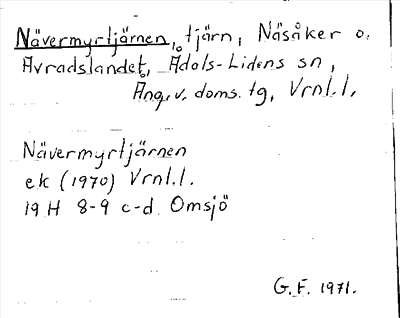 Nävermyrtjärnen, tjärn, Näsåker o.
Avradslandet, Ådals-Lidens sn,
Ång. v. doms. tg, Vrnl. l.
Nävermyrtjärnen
ek (1970) Vrnl. l.
19 H 8-9 c-d Omsjö
G.F. 1971.